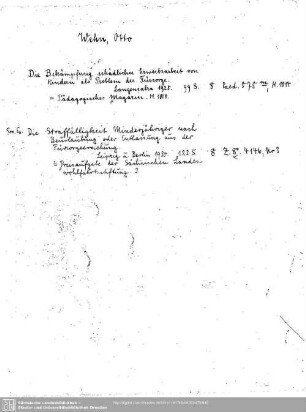 Wehn, Otto
Die Bekämpfung schädlicher Erwerbsarbeit von
Kindern als Problem der Fürsorge.
Langensalza 1925. 99 S. 8 Paed. 575 H. 1011
= Pädagogisches Magazin. H. 1011.
Die Straffälligkeit Minderjähriger nach
Beurlaubung oder Entlassung aus der
Fürsorgeerziehung.
Leipzig u. Berlin 1930. 122 S. 8 Z. 4146, Nr 2
= Preisaufgabe der Sächsischen Landes
wohlfahrtsstiftung 2
Sächsische Landesbibliothek -
Staats- und Universitätsbibliothek Dresden